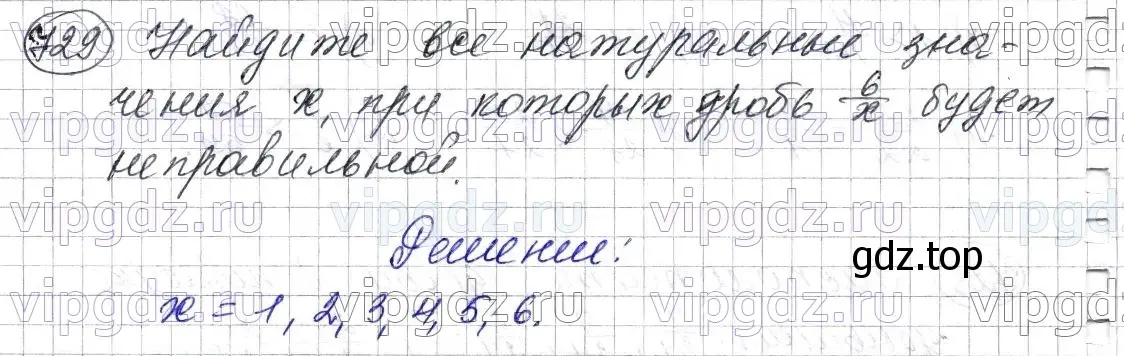 729 Найдите все натуральные зна-
чения x, при которых дробь 6/x будет
неправильной.
Решение:
gdz.top
x = 1, 2, 3, 4, 5, 6.
vipgdz.ru